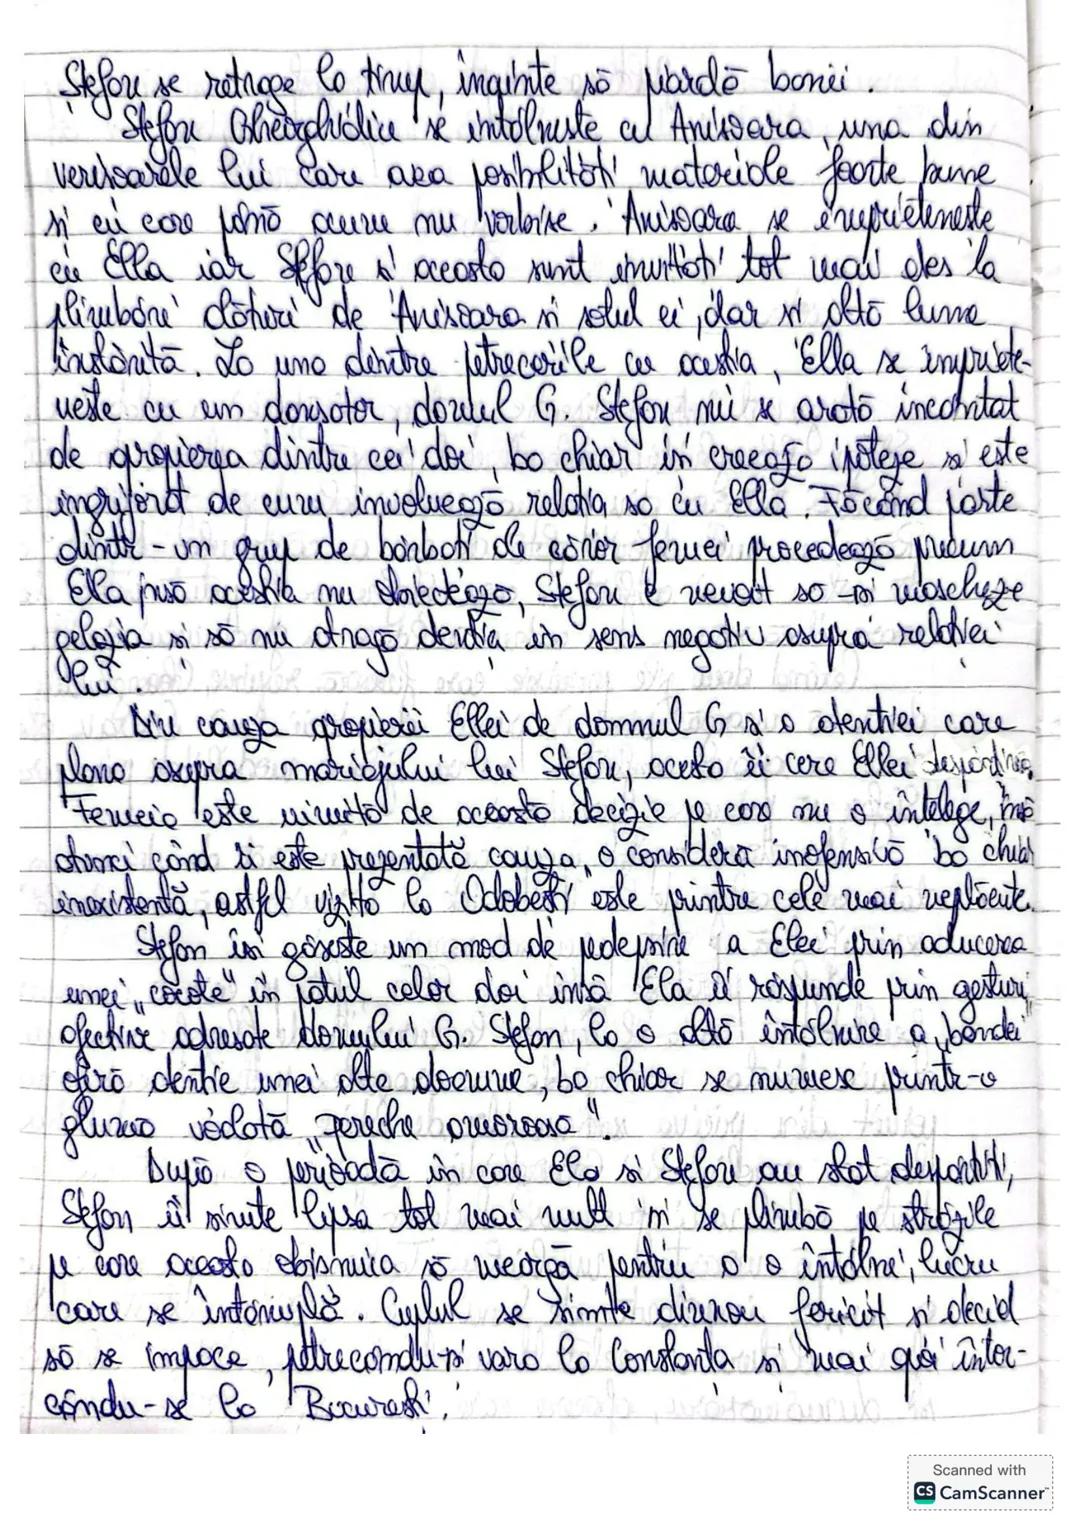 Ștefan se retrage la timp, înainte să piardă banii.
Ștefan Gheorghidiu se întâlnește cu Anișoara, una din
verișoarele lui care avea posibilități materiale foarte bune
și cu care până acum nu vorbise. Anișoara se împrietenește
cu Ella iar Ștefan și aceasta sunt invitați tot mai des la
plimbări alături de Anișoara și soțul ei, dar și altă lume
înstărită. La una dintre petrecerile cu aceștia, Ella se împriete-
nește cu un dansator, domnul G. Ștefan nu se arată încântat
de apropierea dintre cei doi, ba chiar își creează ipoteze și este
îngrijorat de cum involuează relația sa cu Ella. Făcând parte
dintr-un grup de bărbați ale căror femei procedează precum
Ella însă aceștia nu obiectează, Ștefan e nevoit să-și mascheze
gelozia și să nu atragă atenția în sens negativ asupra relației
lui.
Din cauza apropierii Ellei de domnul G și a atenției care
plana asupra mariajului lui Ștefan, acesta îi cere Ellei despărțirea.
Femeia este uimită de această decizie pe care nu o înțelege, însă
atunci când îi este prezentată cauza, o consideră inofensivă ba chiar
inexistentă, astfel vizita la Odobești este printre cele mai neplăcute.
Ștefan își găsește un mod de pedepsire a Elei prin aducerea
unei „cocote" în patul celor doi însă Ela îi răspunde prin gesturi
afective adresate domnului G. Ștefan, la o altă întâlnire a „bandei"
oferă atenție unei alte doamne, ba chiar se numesc printr-o
glumă vădată „pereche amoroasă".
După o perioadă în care Ela și Ștefan au stat despărțiți,
Ștefan îi simte lipsa tot mai mult și se plimbă pe străzile
pe care aceasta obișnuia să meargă pentru a o întâlni, lucru
care se întâmplă. Cuplul se simte din nou fericit și decid
să se împace, petrecându-și vara la Constanța și mai apoi întor-
cându-se la București.
Scanned with
CS CamScanner